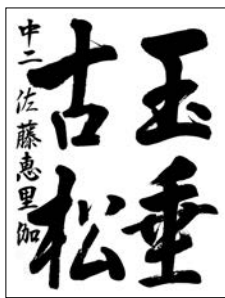 玉垂
古松
中二 佐藤恵里伽